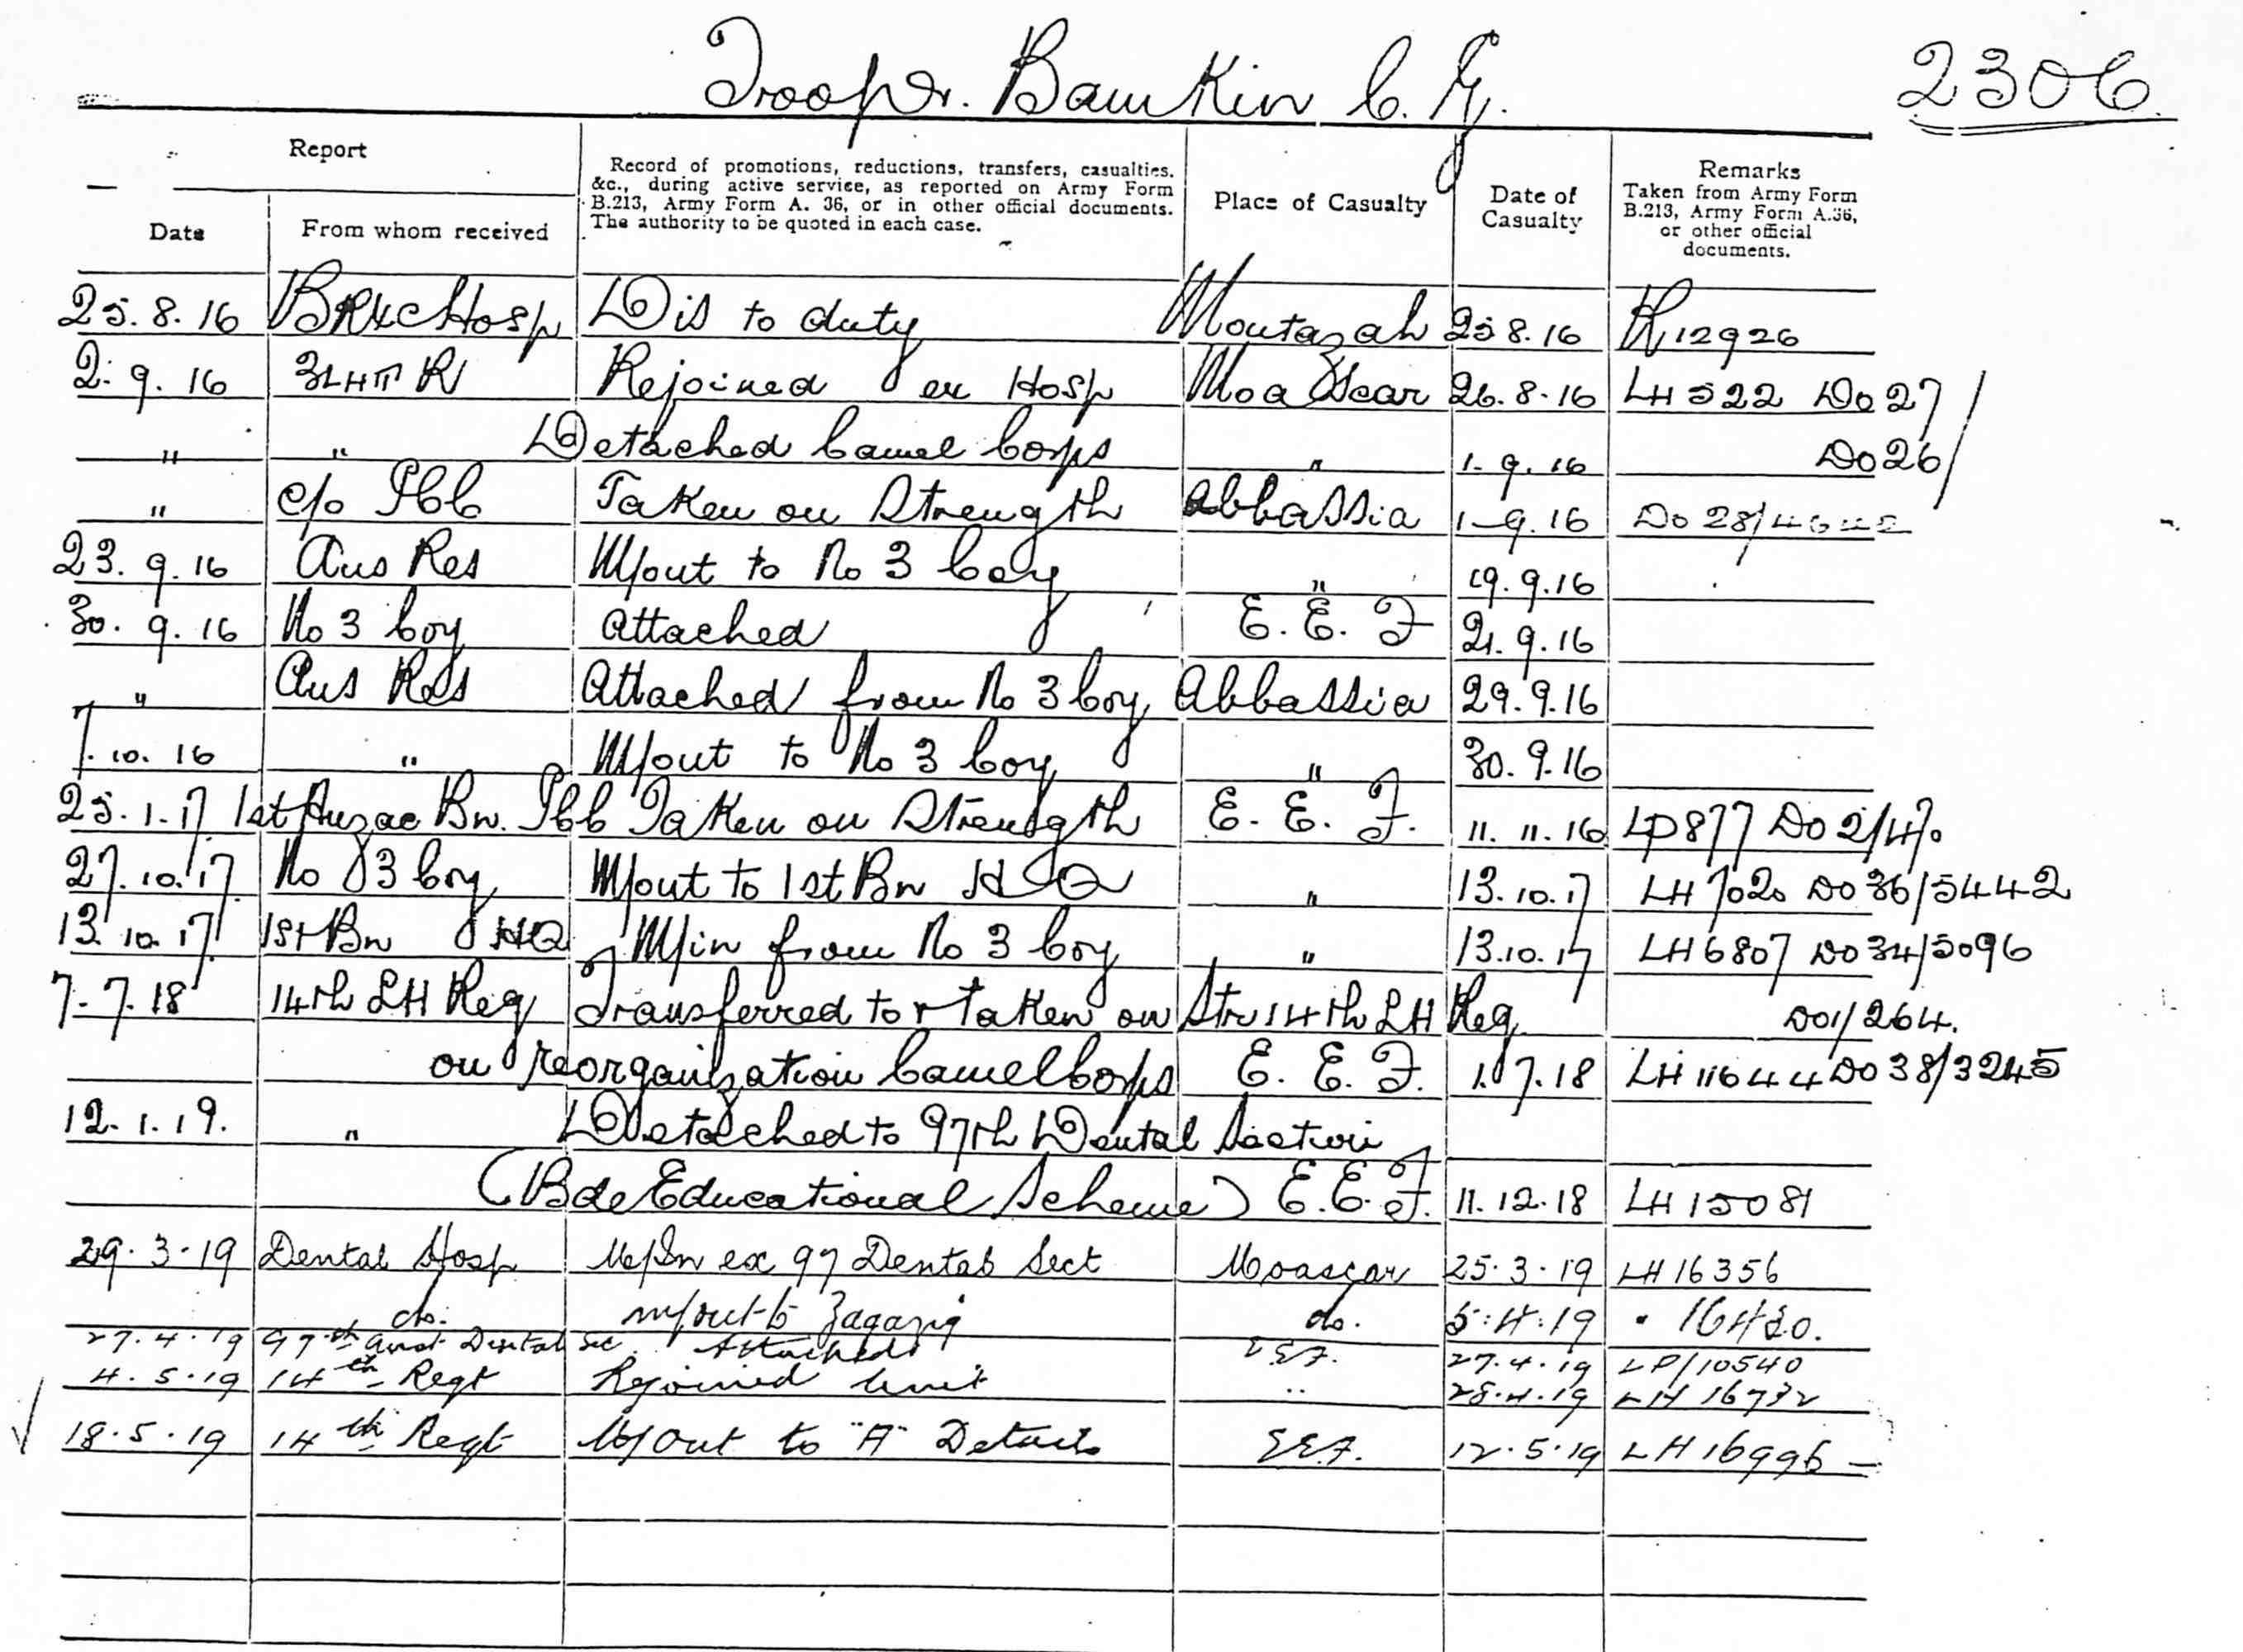 Troopr. Bamkin C. G. 2306
Report
Date
From whom received
Record of promotions, reductions, transfers, casualties,
&c., during active service, as reported on Army Form
B.213, Army Form A. 36, or in other official documents.
The authority to be quoted in each case.
Place of Casualty
Date of
Casualty
Remarks
Taken from Army Form
B.213, Army Form A.36,
or other official
documents.
25.8.16 Hosp Dis to duty Montazah 25.8.16 12926
2.9.16 3 LHTR Rejoined ex Hosp Moascar 26.8.16 LH 522 Do 27/
" " Detached Camel Corps " 1.9.16 Do 26/
" c/o ICC Taken on Strength Abbassia 1-9.16 Do 28/
23.9.16 Aus Res M/out to No 3 Coy " 19.9.16
30.9.16 No 3 Coy Attached E. E. F 21.9.16
" Aus Res Attached from No 3 Coy Abbassia 29.9.16
7.10.16 " M/out to No 3 Coy " 30.9.16
25.1.17 1st Anzac Bn. ICC Taken on Strength E. E. F. 11.11.16 LP877 Do 2/47.
27.10.17 No 3 Coy M/out to 1st Bn HQ " 13.10.17 LH 7020 Do 36/5442
13.10.17 1st Bn HQ M/in from No 3 Coy " 13.10.17 LH 6807 Do 34/5096
7.7.18 14th LH Reg Transferred to & taken on Str 14th LH Reg Do1/264.
on reorganization Camel Corps E. E. F. 1.7.18 LH 11644 Do 38/3245
12.1.19. " Detached to 97th Dental Section
(Bde Educational Scheme) E.E.F. 11.12.18 LH 15081
29.3.19 Dental Hosp M/In ex 97 Dental Sect Moascar 25.3.19 LH 16356
do. m/out to Zagazig do. 5.4.19 "
27.4.19 97th Aust Dental Sec. Attached EEF. 27.4.19 LP/10540
4.5.19 14th Regt Rejoined Unit " 28.4.19 LH 16732
18.5.19 14th Regt M/Out to "A" Details EEF. 12.5.19 LH 16996